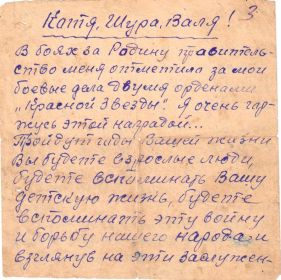 Катя, Шура, Валя! 3
В боях за Родину правитель-
ство меня отметила за мои
боевые дела двумя орденами
"Красной Звезды". Я очень гор-
жусь этой наградой...
Пройдут годы Вашей жизни
Вы будете взрослые люди,
будете вспоминать Вашу
детскую жизнь, будете
вспоминать эту войну
и борьбу нашего народа и
взглянув на эти заслужен-